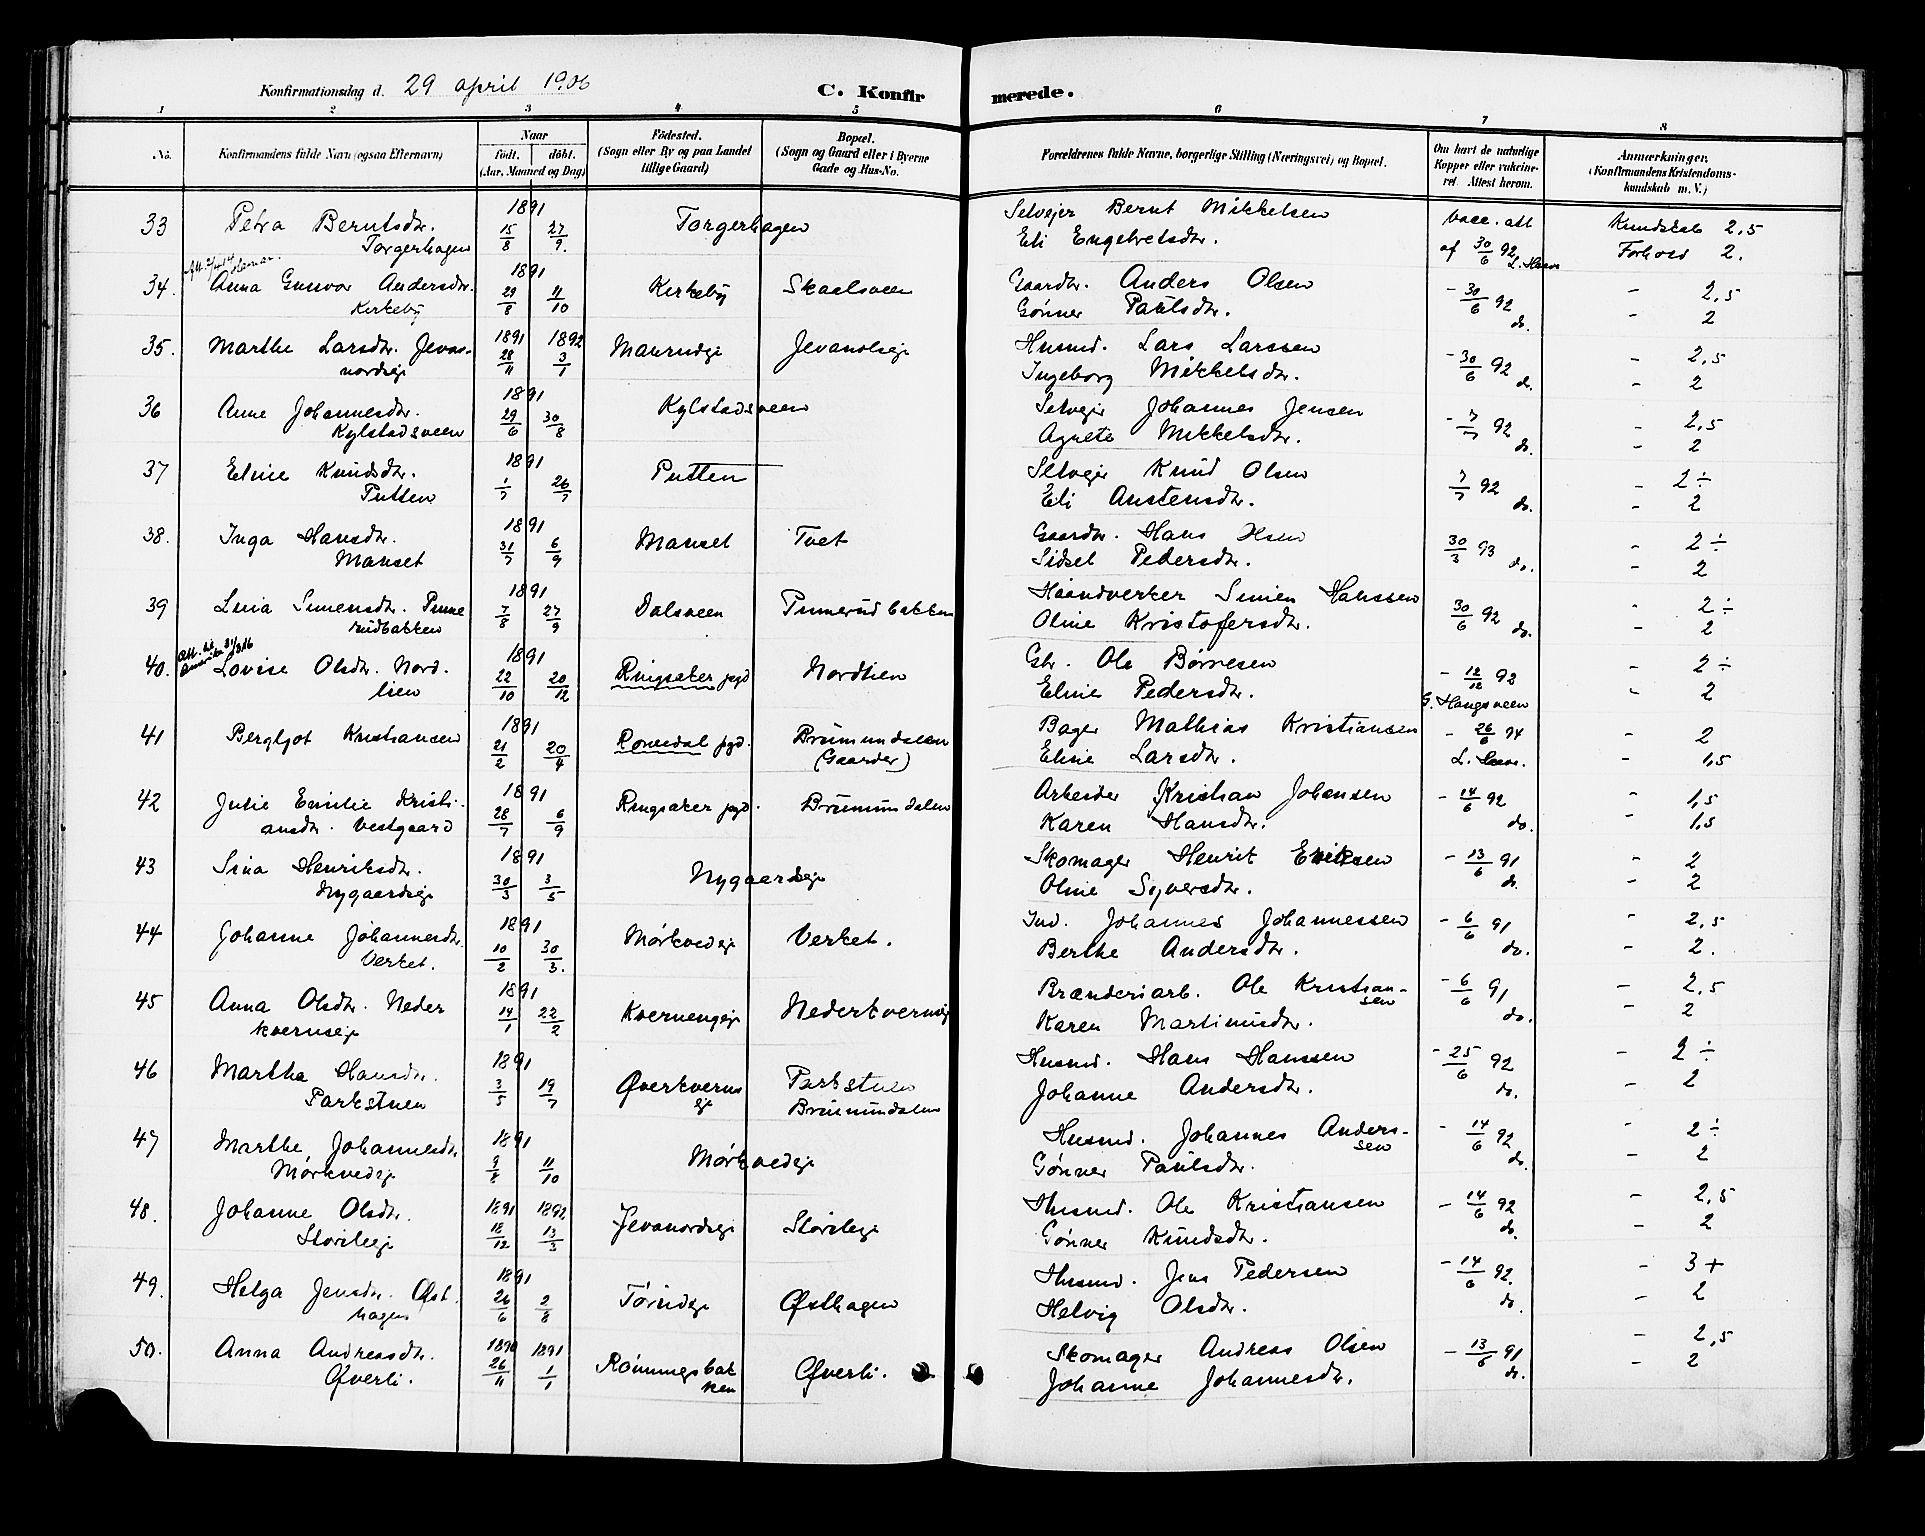 Konfirmationsdag d. 29 april 1906
C. Konfirmerede.
1 2 3 4 5 6 7 8
No. Konfirmandens fulde Navn (ogsaa Efternavn) Naar födt. döbt. (Aar, Maaned og Dag) Födested. (Sogn eller By og paa Landet tillige Gaard) Bopæl. (Sogn og Gaard eller i Byerne Gade og Hus-No. Forældrenes fulde Navne, borgerlige Stilling (Næringsvei) og Bopæl. Om havt de naturlige Kopper eller vakcineret. Attest herom. Anmærkninger. (Konfirmandens Kristendomskundskab m. V.)
33 Petra Berntsdtr. 1891 Torgerhagen Selvejer Bernt Mikkelsen vacc. att Kundskab 2,5
Torgerhagen 15/8 27/9. Eli Engebretsdtr. af 30/6 92 Forhold 2.
34. Anna Gunvor Andersdtr. 1891 Kirkeby Skaalsveen Gaardbr. Anders Olsen - 30/6 92 - 2,5
Kirkeby 29/8 11/10 Gønner Paulsdtr. do. - 2
35. Marthe Larsdtr. Jevanordseje 1891 1892 Maurudeje Jevanolseje Husmd. Lars Larssen - 30/6 92 - 2,5
28/11 3/1 Ingeborg Mikkelsdtr. do. - 2
36 Anne Johannesdtr. 1891 Kylstadsveen Selvejer Johannes Jensen - 7/7 92 - 2,5
Kylstadsveen 29/6 30/8 Agnete Mikkelsdtr. do. - 2
37 Eline Knudsdtr. 1891 Putten Selvejer Knud Olsen 7/7 92 - 2÷
Putten 1/7 26/7 Eli Austensdtr. do. - 2
38. Inga Hansdtr. 1891 Manset Tvet Gaardbr. Hans Olsen 30/3 93 - 2÷
Manset 31/7 6/9 Sidsel Pedersdtr. do. - 2
39 Lina Simensdtr. Pinnerudbakken 1891 Dalsveen Pinnerudbakken Haandverker Simen Hanssen 30/6 92 - 2÷
7/8 27/9 Oline Kristofersdtr. do. - 2
Att. til Amerika
40. Lovise Olsdtr. Nordlien 1891 Ringsaker pgd Nordlien Gbr. Ole Børresen - 12/12 92 - 2÷
22/10 20/12 Eline Pedersdtr. G. Haugsveen - 2
41 Bergljot Kristiansen 1891 Romedal pgd. Brumunddalen Bager Mathias Kristiansen - 26/6 94 - 2
21/2 20/4 (Gaarder) Eline Larsdtr. - 1,5
42 Julie Emilie Kristiansdtr. Vestgaard 1891 Ringsaker pgd. Brumunddalen Arbeider Kristian Johansen - 14/6 92 - 1,5
28/7 6/9 Karen Hansdtr. do. - 1,5
43 Sina Henriksdtr. 1891 Nygaardseje Skomager Henrik Eriksen - 13/6 91 - 2
Nygaardseje 30/3 3/5 Oline Syversdtr. do. - 2
44 Johanne Johannesdtr. 1891 Mørkvedeje Verket. Ind. Johannes Johannessen - 6/6 91 - 2,5
Verket. 10/2 30/3. Berthe Andersdtr. do. - 2.
45 Anna Olsdtr. Nederkvernseje 1891 Kvernengeje Nederkvernseje Brænderiarb. Ole Kristiansen - 6/6 91 - 2,5
14/1 22/2 Karen Martinusdtr. do. - 2
46 Martha Hansdtr. 1891 Øverkvernseje Parkstuen Husmd. Hans Hanssen - 25/6 92 - 2÷
Parkstuen 3/5 19/7 Brumunddalen Johanne Andersdtr. do. - 2
47 Marthe Johannesdtr. 1891 Mørkvedeje Husmd. Johannes Anderssen - 14/6 92 - 2÷
Mørkvedeje 9/8 11/10 Gønner Paulsdtr. do. - 2
48. Johanne Olsdtr. 1891 1892 Jevanordseje Størileje Husmd. Ole Kristiansen - 14/6 92 - 2,5
Størileje 18/12 13/3 Gønner Knudsdtr. do. - 2
49. Helga Jensdtr. Østhagen 1891 Tørudeje Østhagen Husmd. Jens Pedersen - 14/6 92. - 3+
26/6 2/8 Helvig Olsdtr. do. - 2
50. Anna Andreasdtr. 1890 1891 Rømmingsbakken Øverli. Skomager Andreas Olsen - 13/6 91 - 2,5
Øverli. 26/11 1/1 Johanne Johannesdtr. do. - 2